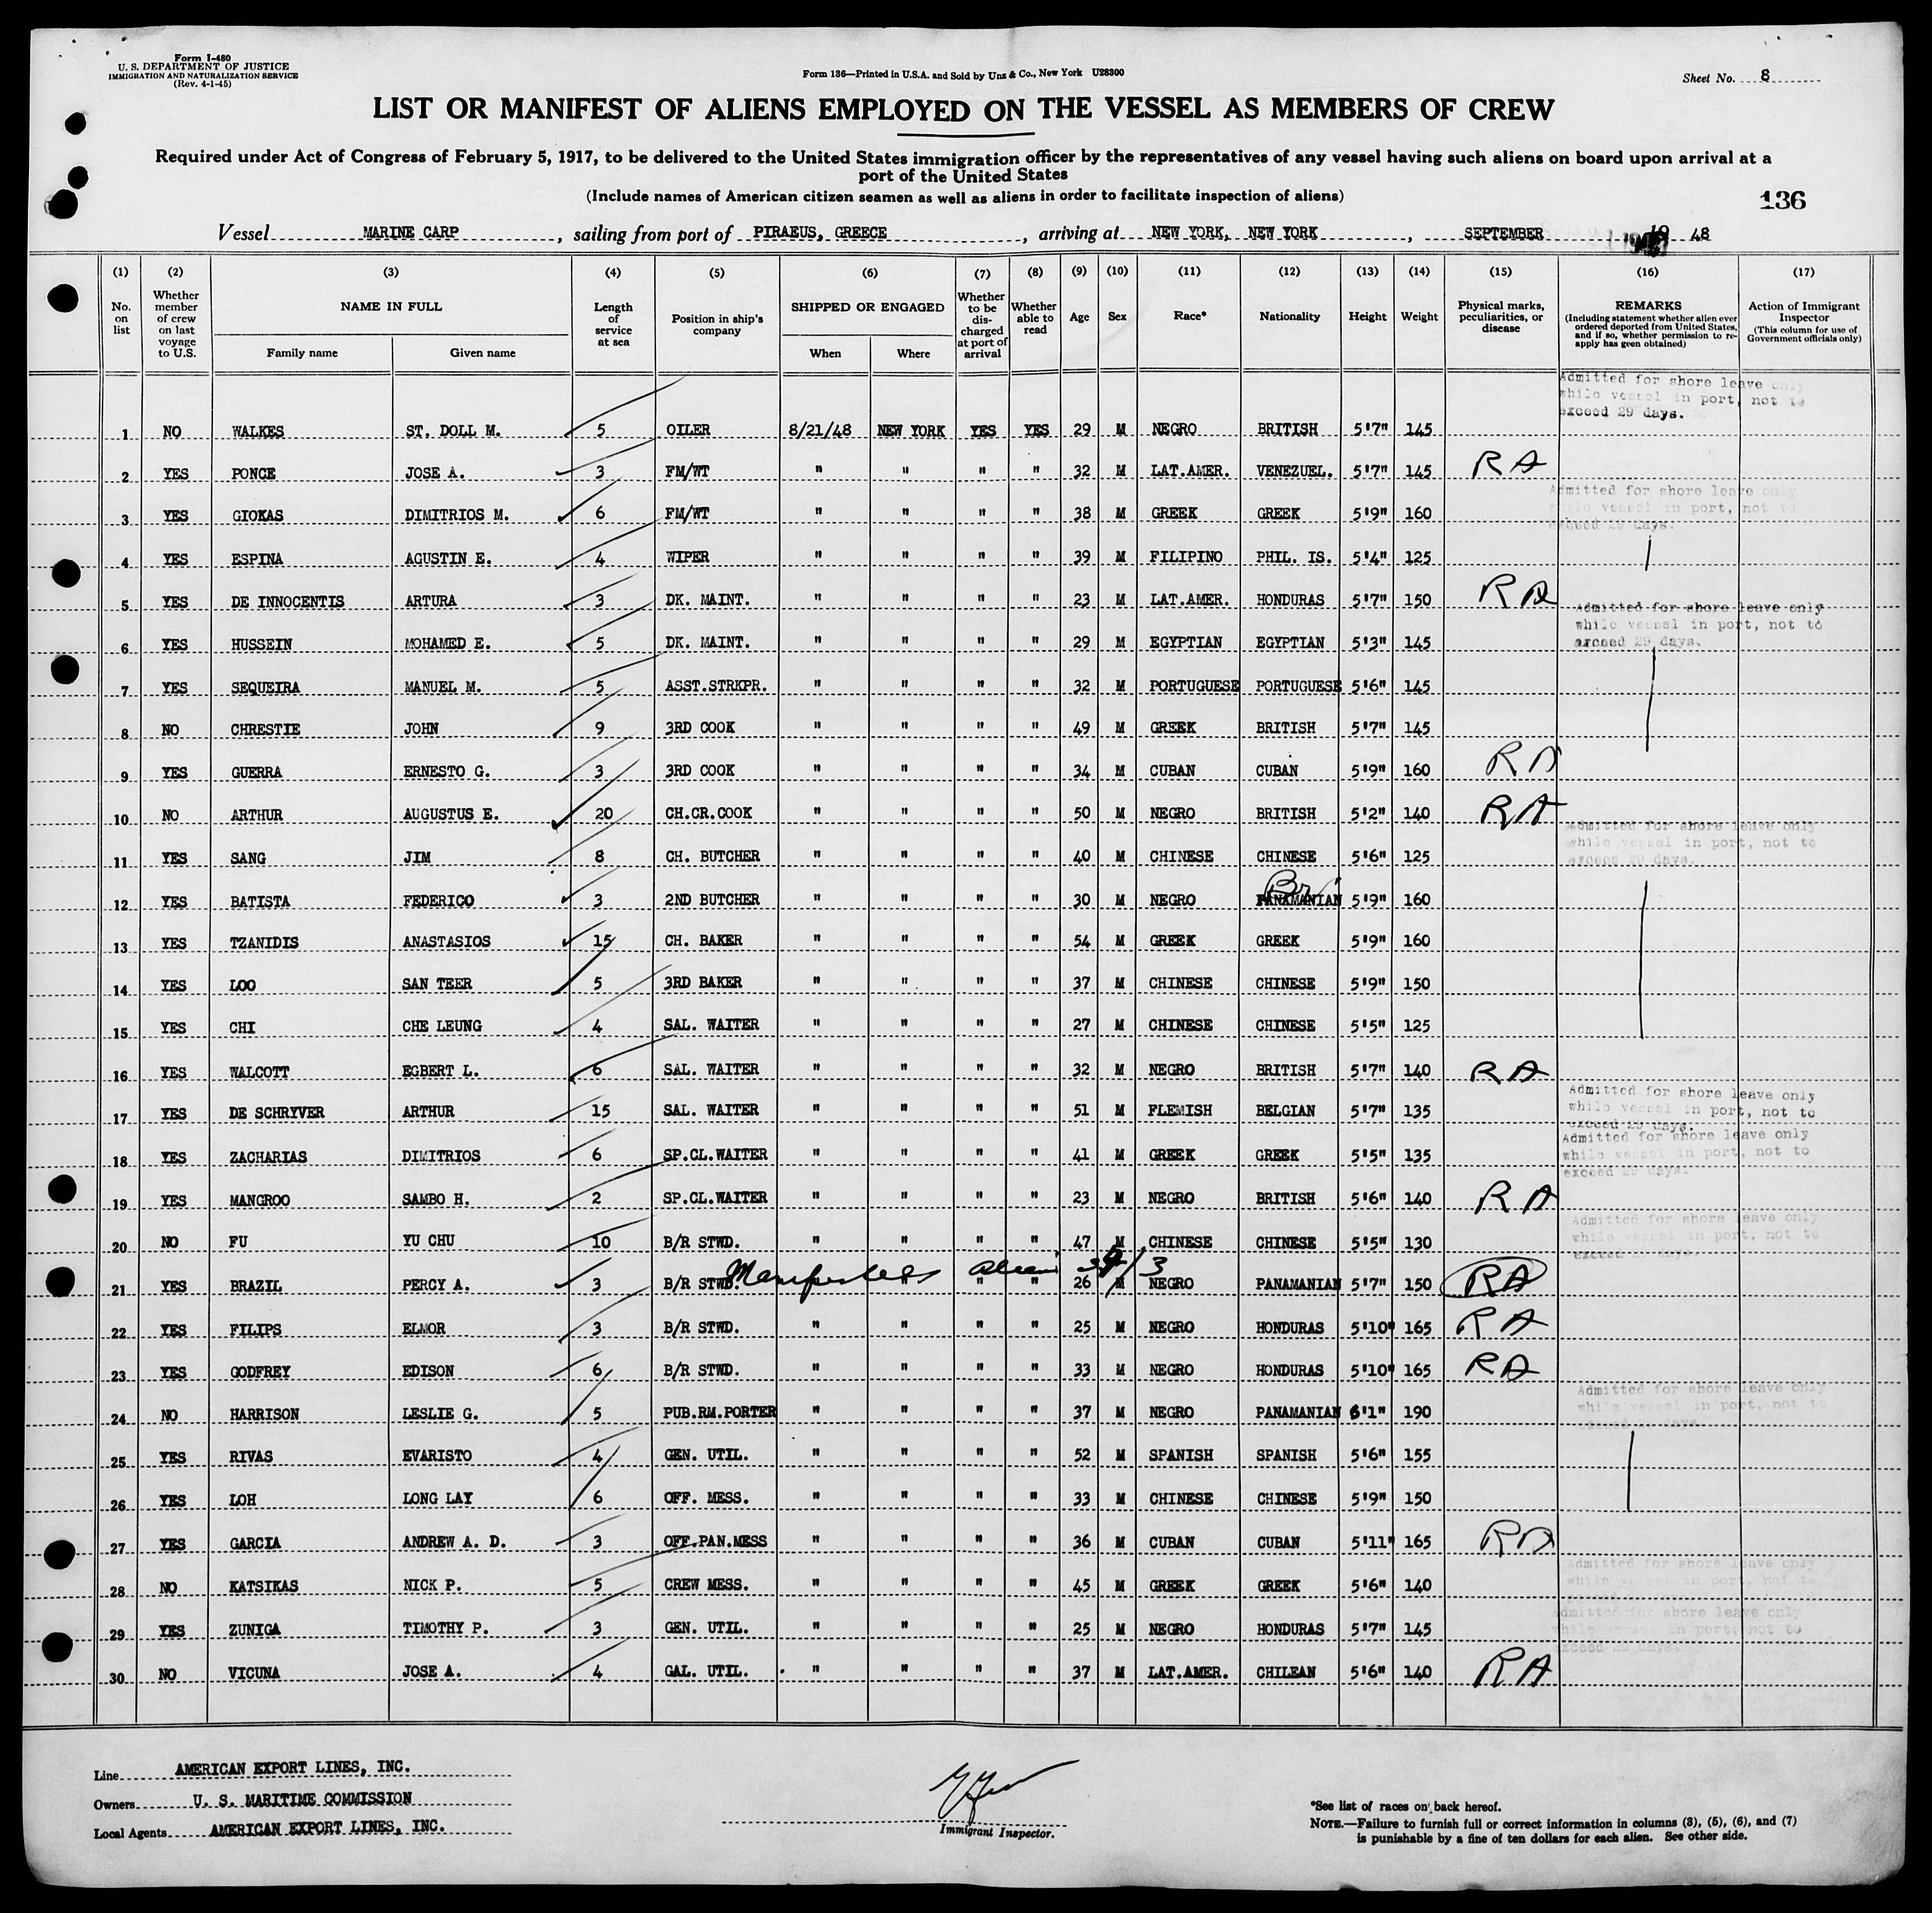 Form I-480
U. S. DEPARTMENT OF JUSTICE
IMMIGRATION AND NATURALIZATION SERVICE
(Rev. 4-1-45)
Form 136—Printed in U.S.A. and Sold by Unz & Co., New York U28300
Sheet No. 8
LIST OR MANIFEST OF ALIENS EMPLOYED ON THE VESSEL AS MEMBERS OF CREW
Required under Act of Congress of February 5, 1917, to be delivered to the United States immigration officer by the representatives of any vessel having such aliens on board upon arrival at a
port of the United States
(Include names of American citizen seamen as well as aliens in order to facilitate inspection of aliens)
136
Vessel MARINE CARP, sailing from port of PIRAEUS, GREECE, arriving at NEW YORK, NEW YORK, SEPTEMBER 19 48
(1) (2) (3) (4) (5) (6) (7) (8) (9) (10) (11) (12) (13) (14) (15) (16) (17)
No. on list
Whether member of crew on last voyage to U.S.
NAME IN FULL
Family name
Given name
Length of service at sea
Position in ship's company
SHIPPED OR ENGAGED
When
Where
Whether to be discharged at port of arrival
Whether able to read
Age
Sex
Race*
Nationality
Height
Weight
Physical marks, peculiarities, or disease
REMARKS
(Including statement whether alien ever ordered deported from United States, and if so, whether permission to reapply has geen obtained)
Action of Immigrant Inspector
(This column for use of Government officials only)
Admitted for shore leave only
while vessel in port, not to
exceed 29 days.
1 NO WALKES ST. DOLL M. 5 OILER 8/21/48 NEW YORK YES YES 29 M NEGRO BRITISH 5'7" 145
2 YES PONCE JOSE A. 3 FM/WT " " " " 32 M LAT.AMER. VENEZUEL. 5'7" 145 RA
Admitted for shore leave only
while vessel in port, not to
exceed 29 days.
3 YES GIOKAS DIMITRIOS M. 6 FM/WT " " " " 38 M GREEK GREEK 5'9" 160
4 YES ESPINA AGUSTIN E. 4 WIPER " " " " 39 M FILIPINO PHIL. IS. 5'4" 125
5 YES DE INNOCENTIS ARTURA 3 DK. MAINT. " " " " 23 M LAT.AMER. HONDURAS 5'7" 150 RA
Admitted for shore leave only
while vessel in port, not to
exceed 29 days.
6 YES HUSSEIN MOHAMED E. 5 DK. MAINT. " " " " 29 M EGYPTIAN EGYPTIAN 5'3" 145
7 YES SEQUEIRA MANUEL M. 5 ASST.STRKPR. " " " " 32 M PORTUGUESE PORTUGUESE 5'6" 145
8 NO CHRESTIE JOHN 9 3RD COOK " " " " 49 M GREEK BRITISH 5'7" 145
9 YES GUERRA ERNESTO G. 3 3RD COOK " " " " 34 M CUBAN CUBAN 5'9" 160 RA
10 NO ARTHUR AUGUSTUS E. 20 CH.CR.COOK " " " " 50 M NEGRO BRITISH 5'2" 140 RA
Admitted for shore leave only
while vessel in port, not to
exceed 29 days.
11 YES SANG JIM 8 CH. BUTCHER " " " " 40 M CHINESE CHINESE 5'6" 125
Br
12 YES BATISTA FEDERICO 3 2ND BUTCHER " " " " 30 M NEGRO PANAMANIAN 5'9" 160
13 YES TZANIDIS ANASTASIOS 15 CH. BAKER " " " " 54 M GREEK GREEK 5'9" 160
14 YES LOO SAN TEER 5 3RD BAKER " " " " 37 M CHINESE CHINESE 5'9" 150
15 YES CHI CHE LEUNG 4 SAL. WAITER " " " " 27 M CHINESE CHINESE 5'5" 125
16 YES WALCOTT EGBERT L. 6 SAL. WAITER " " " " 32 M NEGRO BRITISH 5'7" 140 RA
Admitted for shore leave only
while vessel in port, not to
exceed 29 days.
17 YES DE SCHRYVER ARTHUR 15 SAL. WAITER " " " " 51 M FLEMISH BELGIAN 5'7" 135
Admitted for shore leave only
while vessel in port, not to
exceed 29 days.
18 YES ZACHARIAS DIMITRIOS 6 SP.CL.WAITER " " " " 41 M GREEK GREEK 5'5" 135
19 YES MANGROO SAMBO H. 2 SP.CL.WAITER " " " " 23 M NEGRO BRITISH 5'6" 140 RA
Admitted for shore leave only
while vessel in port, not to
exceed 29 days.
20 NO FU YU CHU 10 B/R STWD. " " " " 47 M CHINESE CHINESE 5'5" 130
21 YES BRAZIL PERCY A. 3 B/R STWD. " " " 26 M NEGRO PANAMANIAN 5'7" 150 RA
22 YES FILIPS ELMOR 3 B/R STWD. " " " " 25 M NEGRO HONDURAS 5'10" 165 RA
23 YES GODFREY EDISON 6 B/R STWD. " " " " 33 M NEGRO HONDURAS 5'10" 165 RA
Admitted for shore leave only
while vessel in port, not to
exceed 29 days.
24 NO HARRISON LESLIE G. 5 PUB.RM.PORTER " " " " 37 M NEGRO PANAMANIAN 6'1" 190
25 YES RIVAS EVARISTO 4 GEN. UTIL. " " " " 52 M SPANISH SPANISH 5'6" 155
26 YES LOH LONG LAY 6 OFF. MESS. " " " " 33 M CHINESE CHINESE 5'9" 150
27 YES GARCIA ANDREW A. D. 3 OFF.PAN.MESS " " " " 36 M CUBAN CUBAN 5'11" 165 RA
Admitted for shore leave only
while vessel in port, not to
28 NO KATSIKAS NICK P. 5 CREW MESS. " " " " 45 M GREEK GREEK 5'6" 140
Admitted for shore leave only
while vessel in port, not to
exceed 29 days.
29 YES ZUNIGA TIMOTHY P. 3 GEN. UTIL. " " " " 25 M NEGRO HONDURAS 5'7" 145
30 NO VICUNA JOSE A. 4 GAL. UTIL. " " " " 37 M LAT.AMER. CHILEAN 5'6" 140 RA
Line AMERICAN EXPORT LINES, INC.
Owners U. S. MARITIME COMMISSION
Local Agents AMERICAN EXPORT LINES, INC.
Immigrant Inspector.
*See list of races on back hereof.
NOTE.—Failure to furnish full or correct information in columns (3), (5), (6), and (7)
is punishable by a fine of ten dollars for each alien. See other side.